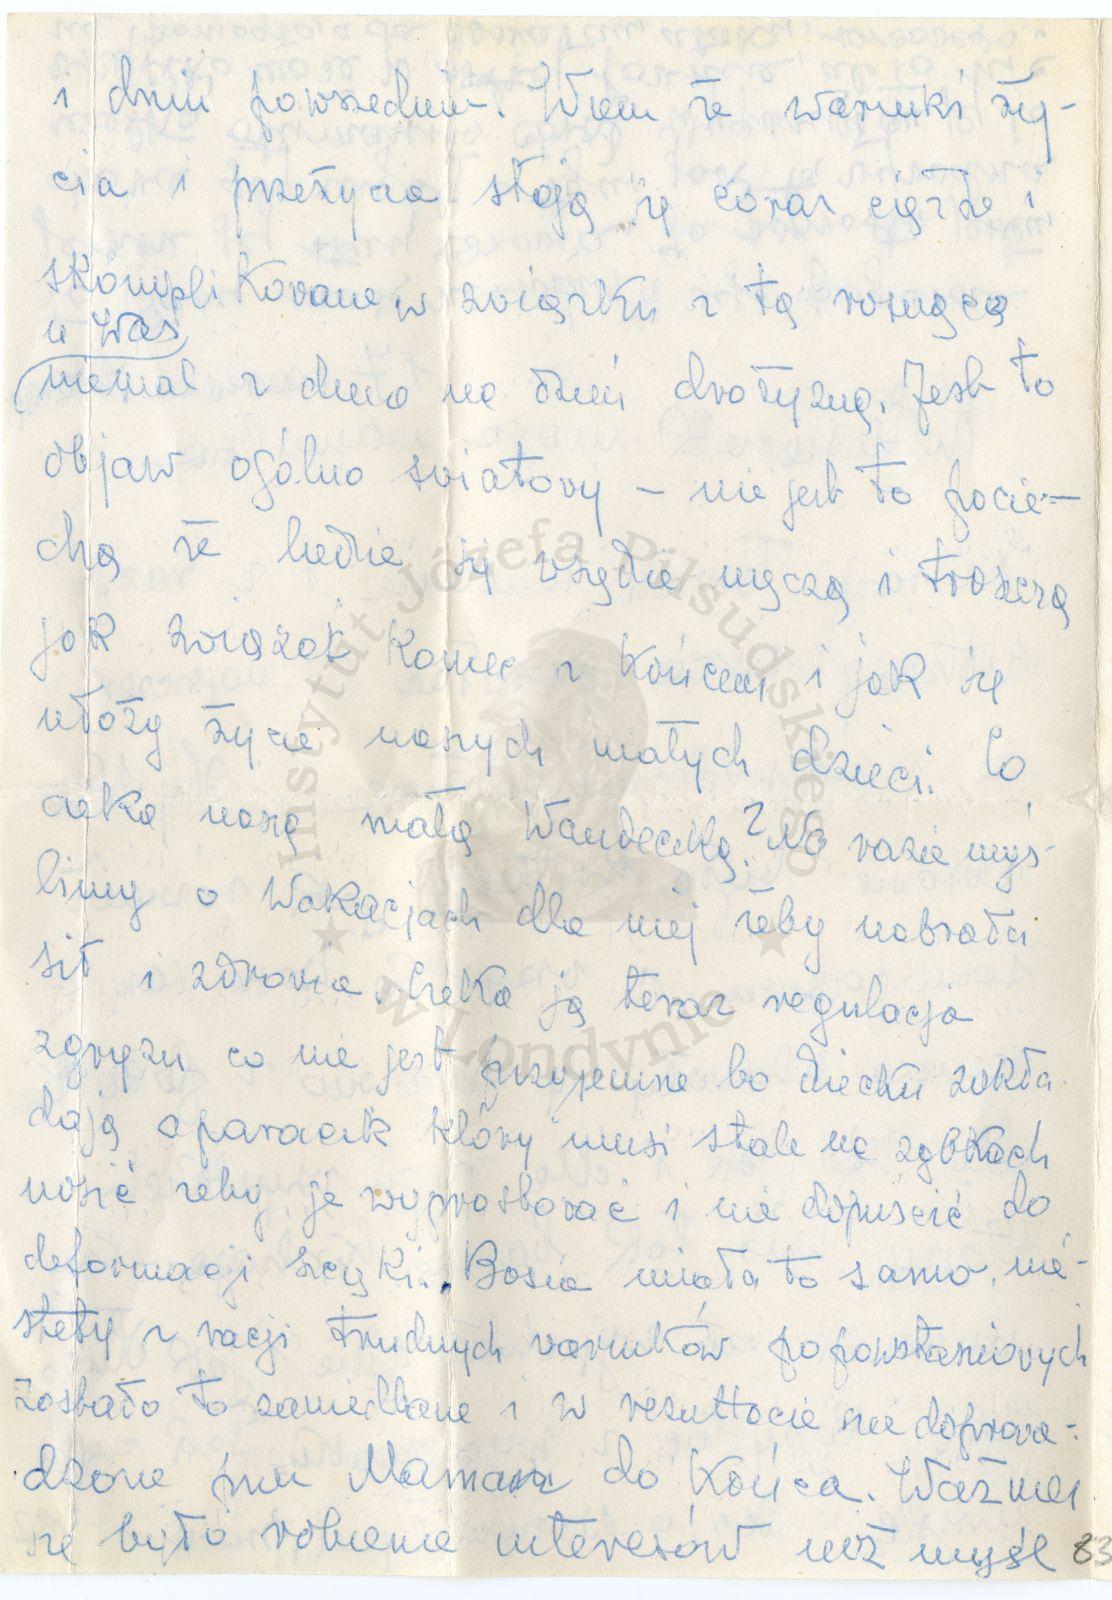 i dniu powszednim. Wiem że warunki ży-
cia i przeżycia stają się coraz cięższe i
skomplikowane w związku z tą rosnącą
u Was
niemal z dnia na dzień drożyzną. Jest to
objaw ogólno światowy – nie jest to pocie-
chą że ludzie się wszędzie męczą i troszczą
jak związać koniec z końcem i jak się
ułoży życie naszych małych dzieci. Co
czeka naszą małą Wandeczkę? Na razie myś-
limy o wakacjach dla niej żeby nabrała
sił i zdrowia. Czeka ją teraz regulacja
zgryzu co nie jest przyjemne bo dziecku zakła
dają aparacik który musi stale na ząbkach
nosić żeby je wyprostować i nie dopuścić do
deformacji szczęki. Basia miała to samo, nie-
stety z racji trudnych warunków popowstaniowych
zostało to zaniedbane i w rezultacie nie doprowa-
dzone przez Mamani do końca. Ważniej
sze było robienie interesów niż myśl
83
Instytut Józefa Piłsudskiego
w Londynie